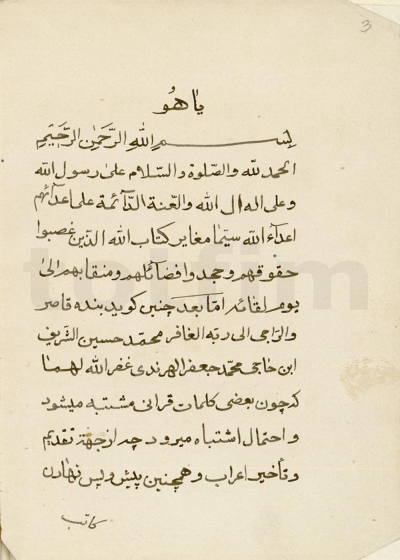 3
یاهُو
بِسْمِ اللهِ الرَّحْمٰنِ الرَّحِیمِ
الحمد للّه والصّلوة والسّلام علیٰ رسول الله
وعلی اله ال الله والعّنة الدّآئمة علی اعدآئهم
اعدآء الله سیّما مغایر کتاب الله الذین غصبوا
حقوقهم وجحدوا فضآئلهم ومناقبهم الیٰ
یوم لقائه امّا بعد چنین کوید بنده قاصر
والرّاجی الی ربّه الغافر محمّد حسین الشّریف
ابن حاجی محمّد جعفر الهرندی غفر الله لهما
که چون بعضی کلمات قرانی مشتبه میشود
و احتمال اشتباه میرود چه از جهة تقدیم
وتأخیر اعراب وهمچنین پیش وپس نهادن
کاتب